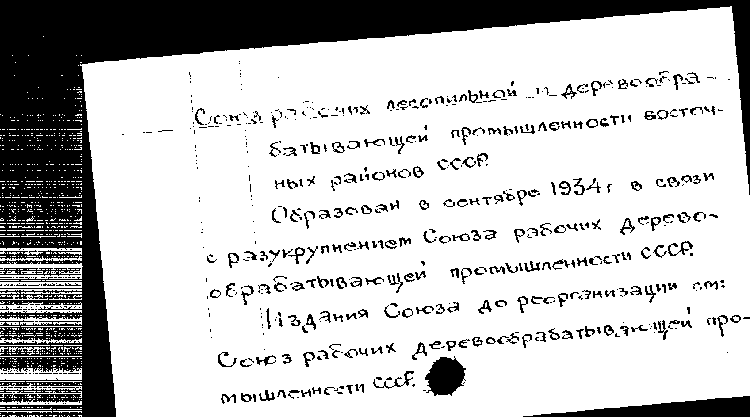 Союз рабочих лесопильной и деревообра-
батывающей промышленности восточ-
ных районов СССР.
Образован в сентябре 1934г в связи
с разукрупнением Союза рабочих дерево-
обрабатывающей промышленности СССР.
Издания Союза до реорганизации см:
Союз рабочих деревообрабатывающей про-
мышленности СССР.